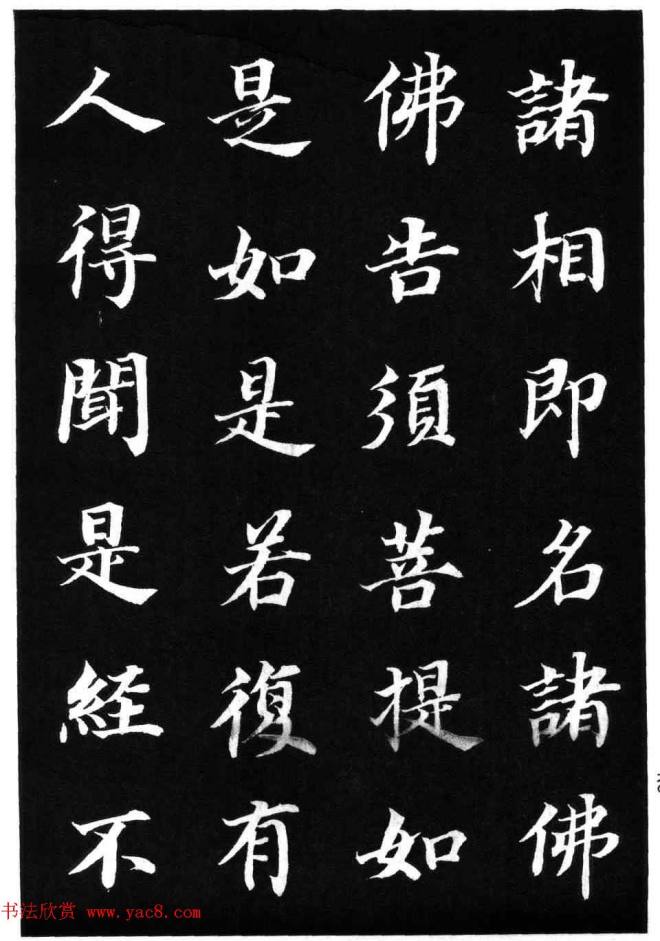 諸相即名諸佛
佛告須菩提如
是如是若復有
人得聞是経不
书法欣赏 www.yac8.com